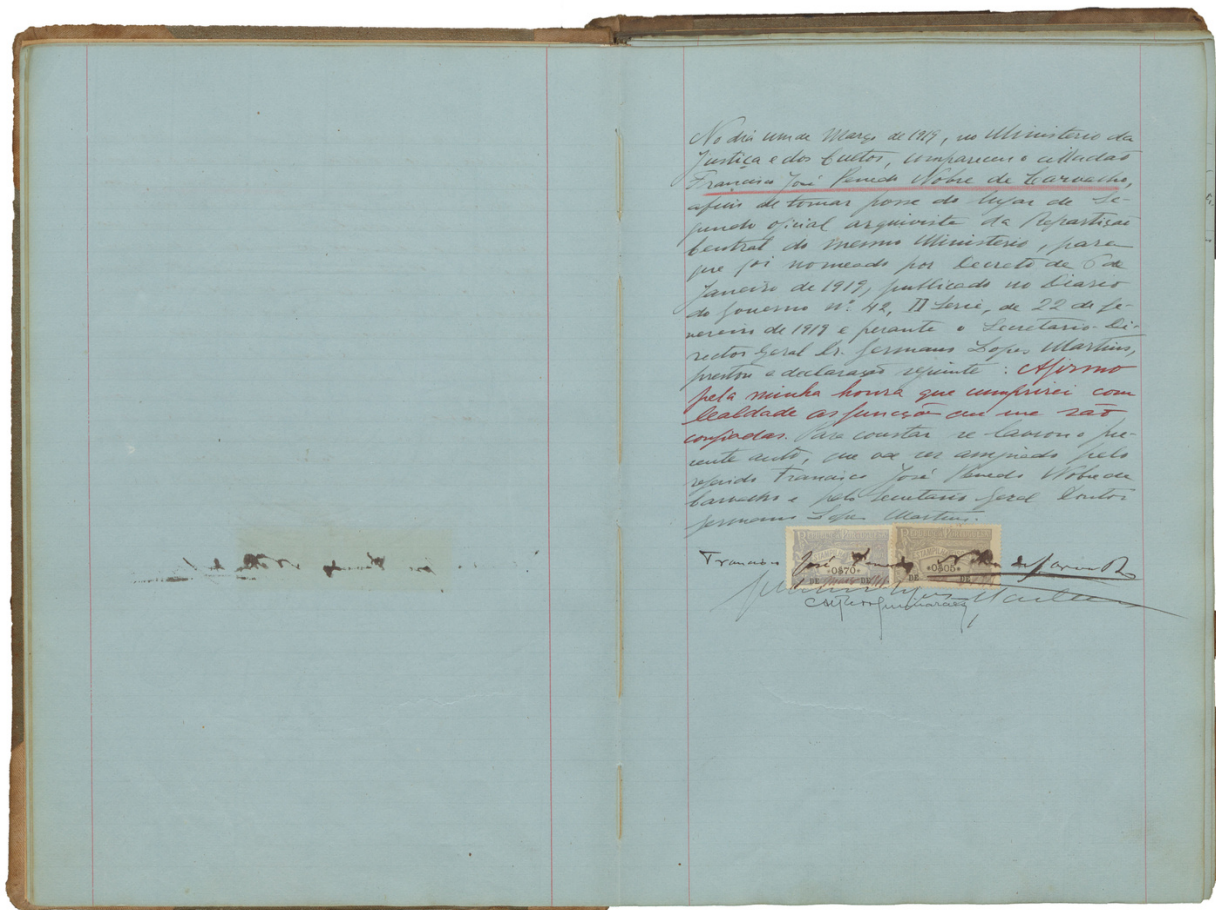 No dia um de Março de 1919, no Ministerio da
Justiça e dos Cultos, compareceu o cidadão
Francisco José Penedo Nobre de Carvalho,
afim de tomar posse do lugar de Se-
gundo oficial arquivista da Repartição
Central do mesmo Ministerio, para
que foi nomeado por Decreto de 6 de
Janeiro de 1919, publicado no Diario
do Governo nº. 42, II Serie, de 22 de fe-
vereiro de 1919 e perante o Secretario Di-
rector Geral Dr. Germano Lopes Martins,
prestou a declaração seguinte: Afirmo
pela minha honra que cumprirei com
lealdade as funções que me são
confiadas. Para constar se lavrou o pre-
sente auto, que vae ser assignado pelo
referido Francisco José Penedo Nobre de
Carvalho e pelo Secretario Geral Doutor
Germano Lopes Martins.
ESTAMPILHA
*0$70* *0$05*
DE DE DE
Francisco José Penedo Nobre de Carvalho
Germano Lopes Martins
Guimarães